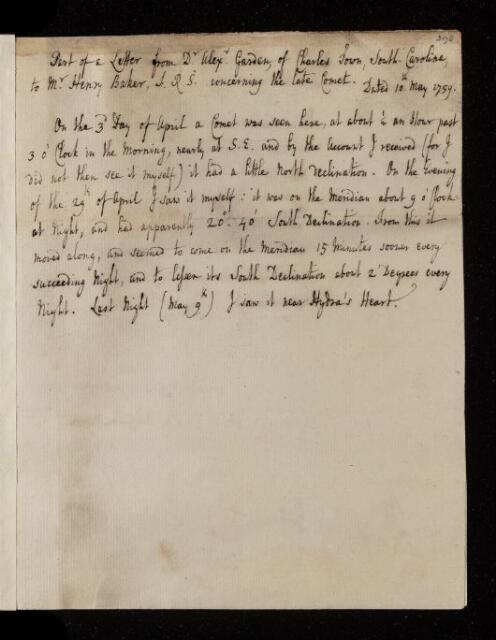 298
Part of a Letter from Dr. Alexr. Garden, of Charles Town, South-Carolina,
to Mr. Henry Baker, F.R.S. concerning the late Comet. Dated 10th May 1759.
On the 3d Day of April a Comet was seen here, at about ½ an Hour past
3 o'Clock in the Morning, nearly at S.E. and by the Account I received (for I
did not then see it myself) it had a little North Declination. On the Evening
of the 29th of April I saw it myself: it was on the Meridian about 9 o'Clock
at Night, and had apparently 20°. 40' South Declination. From this it
moved along, and seemed to come on the Meridian 15 Minutes sooner every
succeeding Night, and to lessen its South Declination about 2 Degrees every
Night. Last Night (May 9th) I saw it near Hydra's Heart.